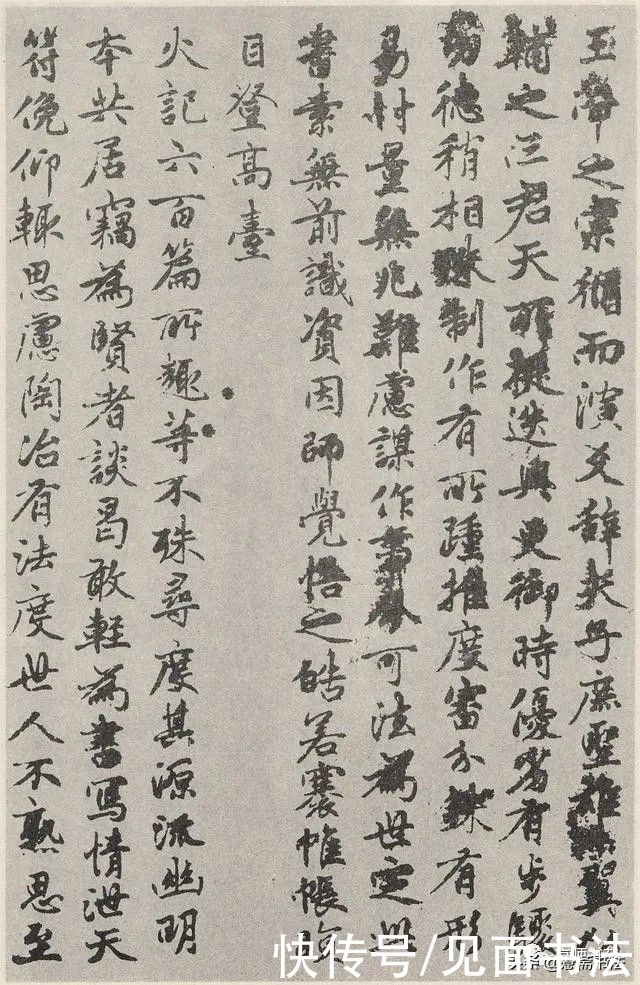 王帝之宗循而演爻辞夫子庶聖雄十翼以
輔之三君天所挺迭興更御時優劣有步驟
功德稍相殊制作有所踵推度審分銖有形
易忖量無兆難慮謀作事令可法為世定此
書素無前識資因師覺悟之皓若褰帷帳瞋
目登高臺
火記六百篇所趣等不殊尋度其源流幽明
本共居竊為賢者談曷敢輕為書寫情泄天
符俛仰輙思慮陶冶有法度世人不熟思至
快传号/见面书法